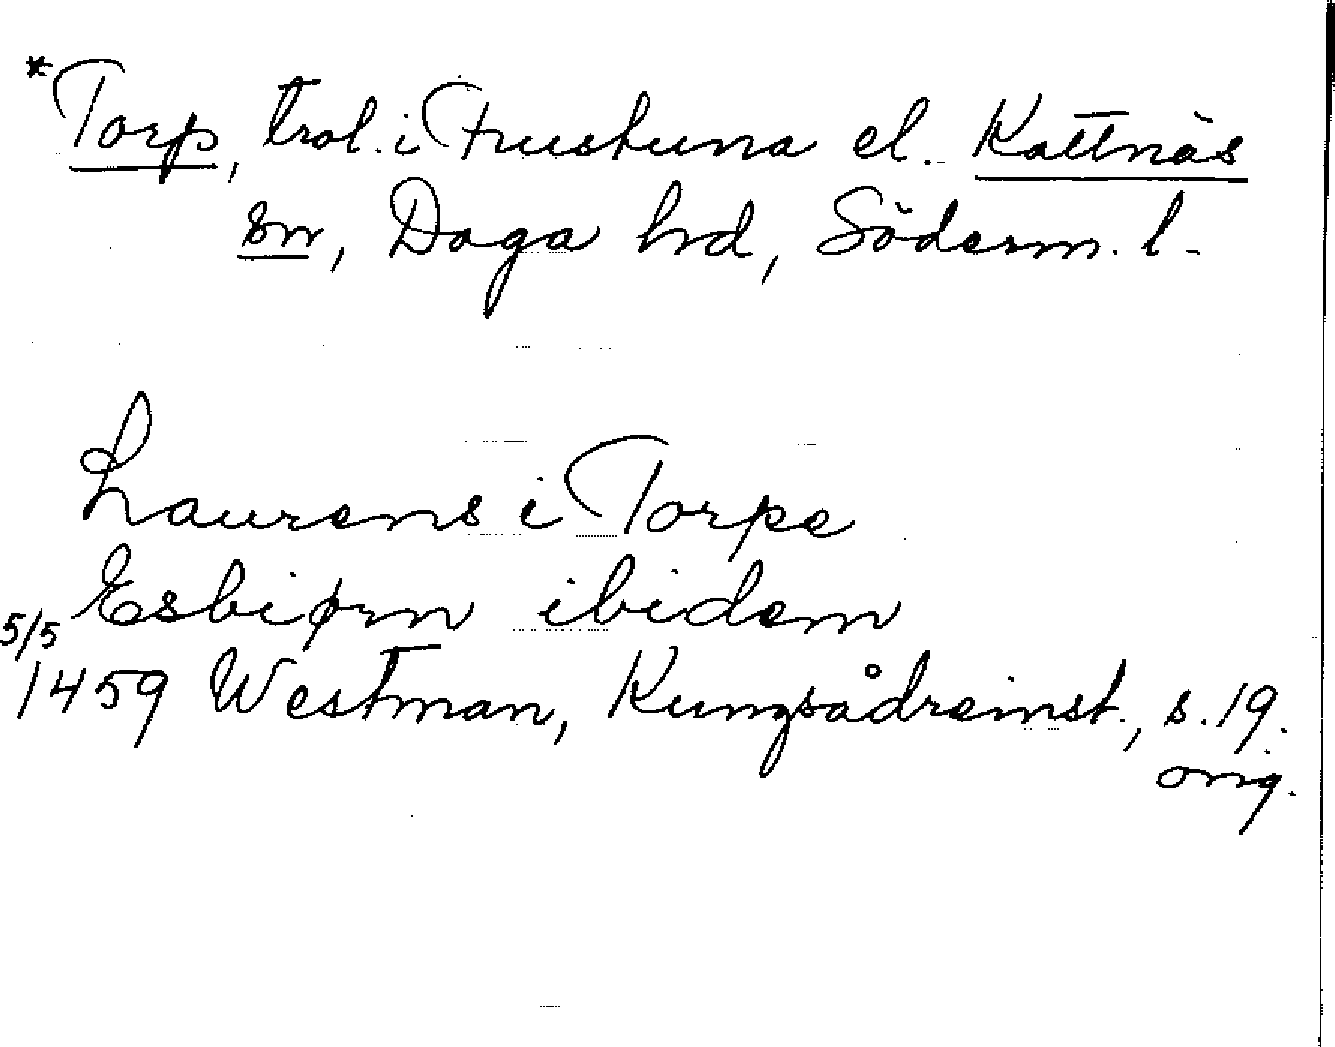 *Torp, trol. i Frustuna el. Kattnäs
sn, Daga hd, Söderm. l.
Laurens i Torpe
Esbiørn ibidem
5/5
1459 Westman, Kungsådreinst., s. 19.
orig.